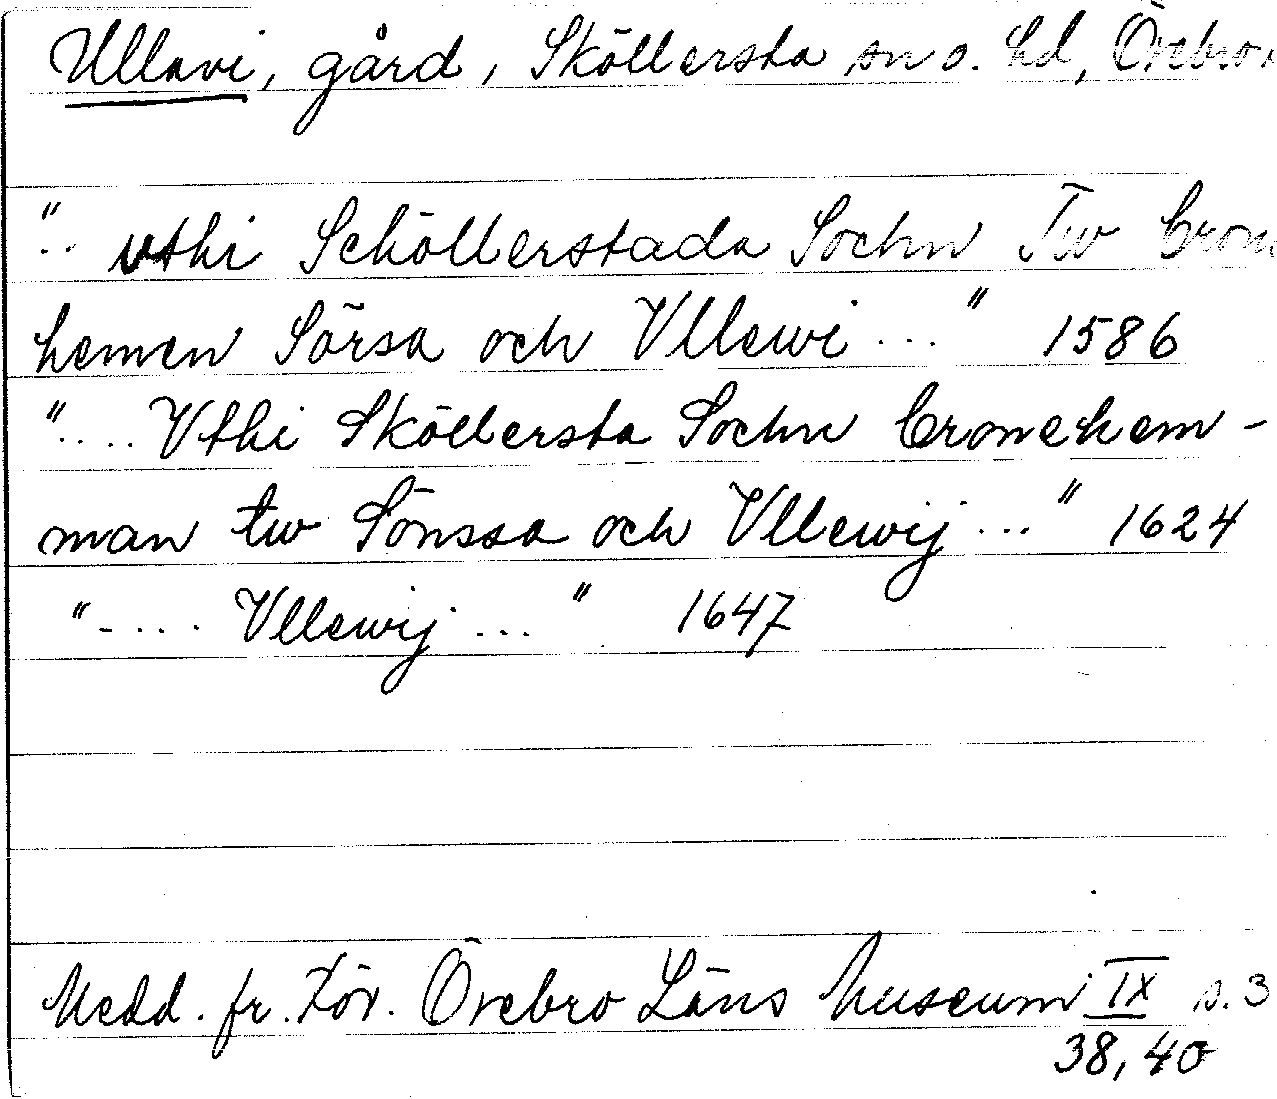 Ullavi, gård, Sköllersta sn o. hd, Örebro
".. vthi Schöllerstada Sochn Tw Cron
hemen Sörsa och Vllewi ..." 1586
".... Vthi Sköllersta Sochn Cronehem-
man tw Sönssa och Vllewij ..." 1624
"-... Vllewij ..." 1647
Medd. fr. För. Örebro Läns Museum IX s. 3
38, 40